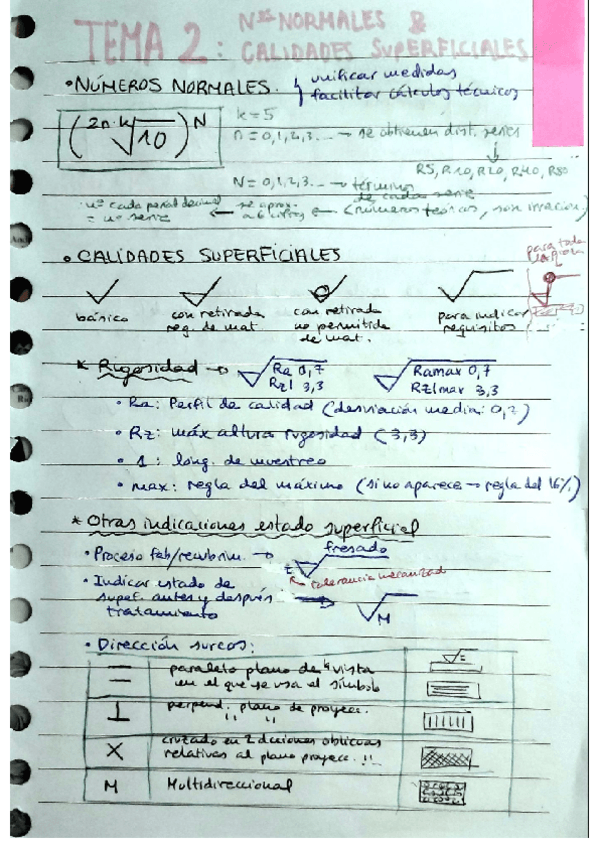 TEMA 2: NOS NORMALES & CALIDADES SUPERFICIALES
• NÚMEROS NORMALES. unificar medidas
facilitar cálculos técnicos
(2n·k√10)N
k = 5
n = 0,1,2,3... → se obtienen dist. series
R5, R10, R20, R40, R80
N = 0,1,2,3... → términos de cada serie
(números teóricos, son irracion.)
← se aprox. a 6 cifras ←
nº cada penal decimal = nº serie
• CALIDADES SUPERFICIALES
para toda la pieza
básico
con retirada req. de mat.
con retirada no permitida de mat.
para indicar requisitos
* Rugosidad → Ra 0,7 Ramax 0,7
Rz1 3,3 Rz1max 3,3
• Ra: Perfil de calidad (desviación media: 0,7)
• Rz: máx altura rugosidad (3,3)
• 1: long. de muestreo
• max: regla del máximo (si no aparece → regla del 16%)
* Otras indicaciones estado superficial
• Proceso fab/recubrim. → fresado
tolerancia mecanizado
• Indicar estado de
supef. antes y después
tratamiento
M
• Dirección surcos:
= paralelo plano de vista
en el que se usa el símbolo
⊥ perpend. plano de proyecc.
" "
X cruzado en 2 dciones oblicuas
relativas al plano proyecc. "
M Multidireccional